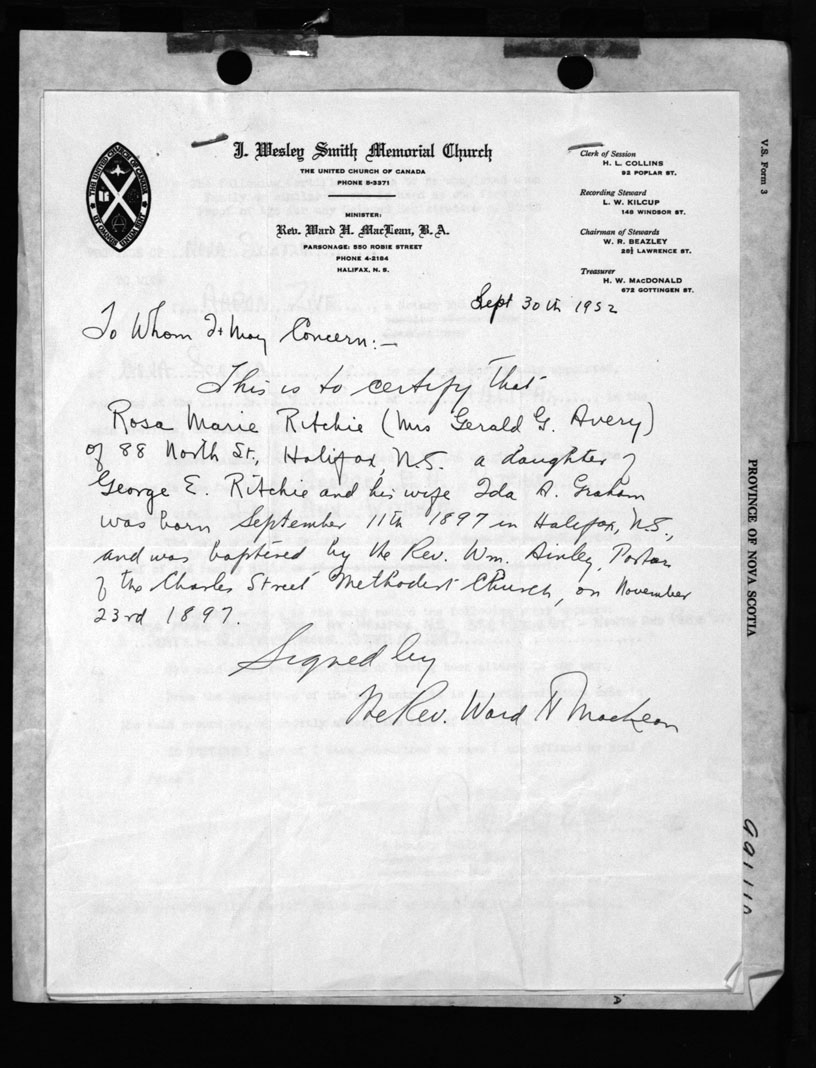 J. Wesley Smith Memorial Church
THE UNITED CHURCH OF CANADA
PHONE 5-3371
MINISTER:
Rev. Ward H. MacLean, B. A.
PARSONAGE: 550 ROBIE STREET
PHONE 4-2184
HALIFAX, N. S.
Clerk of Session
H. L. COLLINS
92 POPLAR ST.
Recording Steward
L. W. KILCUP
149 WINDSOR ST.
Chairman of Stewards
W. R. BEAZLEY
28½ LAWRENCE ST.
Treasurer
H. W. MACDONALD
672 GOTTINGEN ST.
Sept 30th 1952
To Whom It May Concern:—
This is to certify that
Rosa Marie Ritchie (Mrs Gerald G. Avery)
of 88 North St., Halifax, N.S. a daughter of
George E. Ritchie and his wife Ida A. Graham
was born September 11th 1897 in Halifax, N.S.,
and was baptized by the Rev. Wm. Ainley, Pastor
of the Charles Street Methodist Church, on November
23rd 1897
Signed by
The Rev. Ward H MacLean
V.S. Form 3
PROVINCE OF NOVA SCOTIA